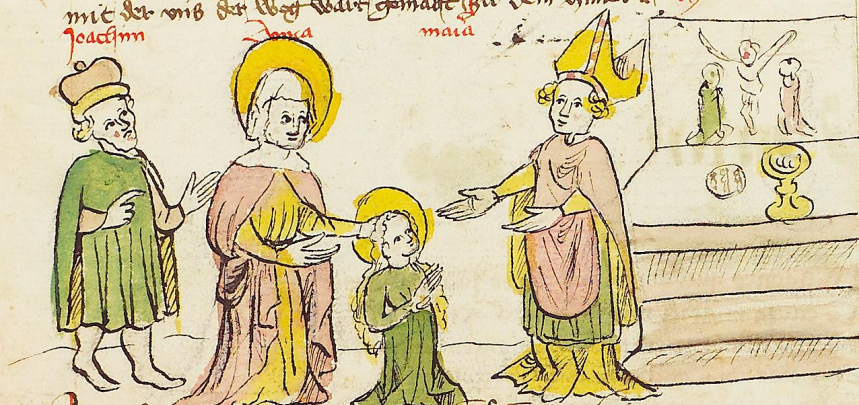 mit der vns der weg wart gemacht zu dem himel
Joachim Anna maria